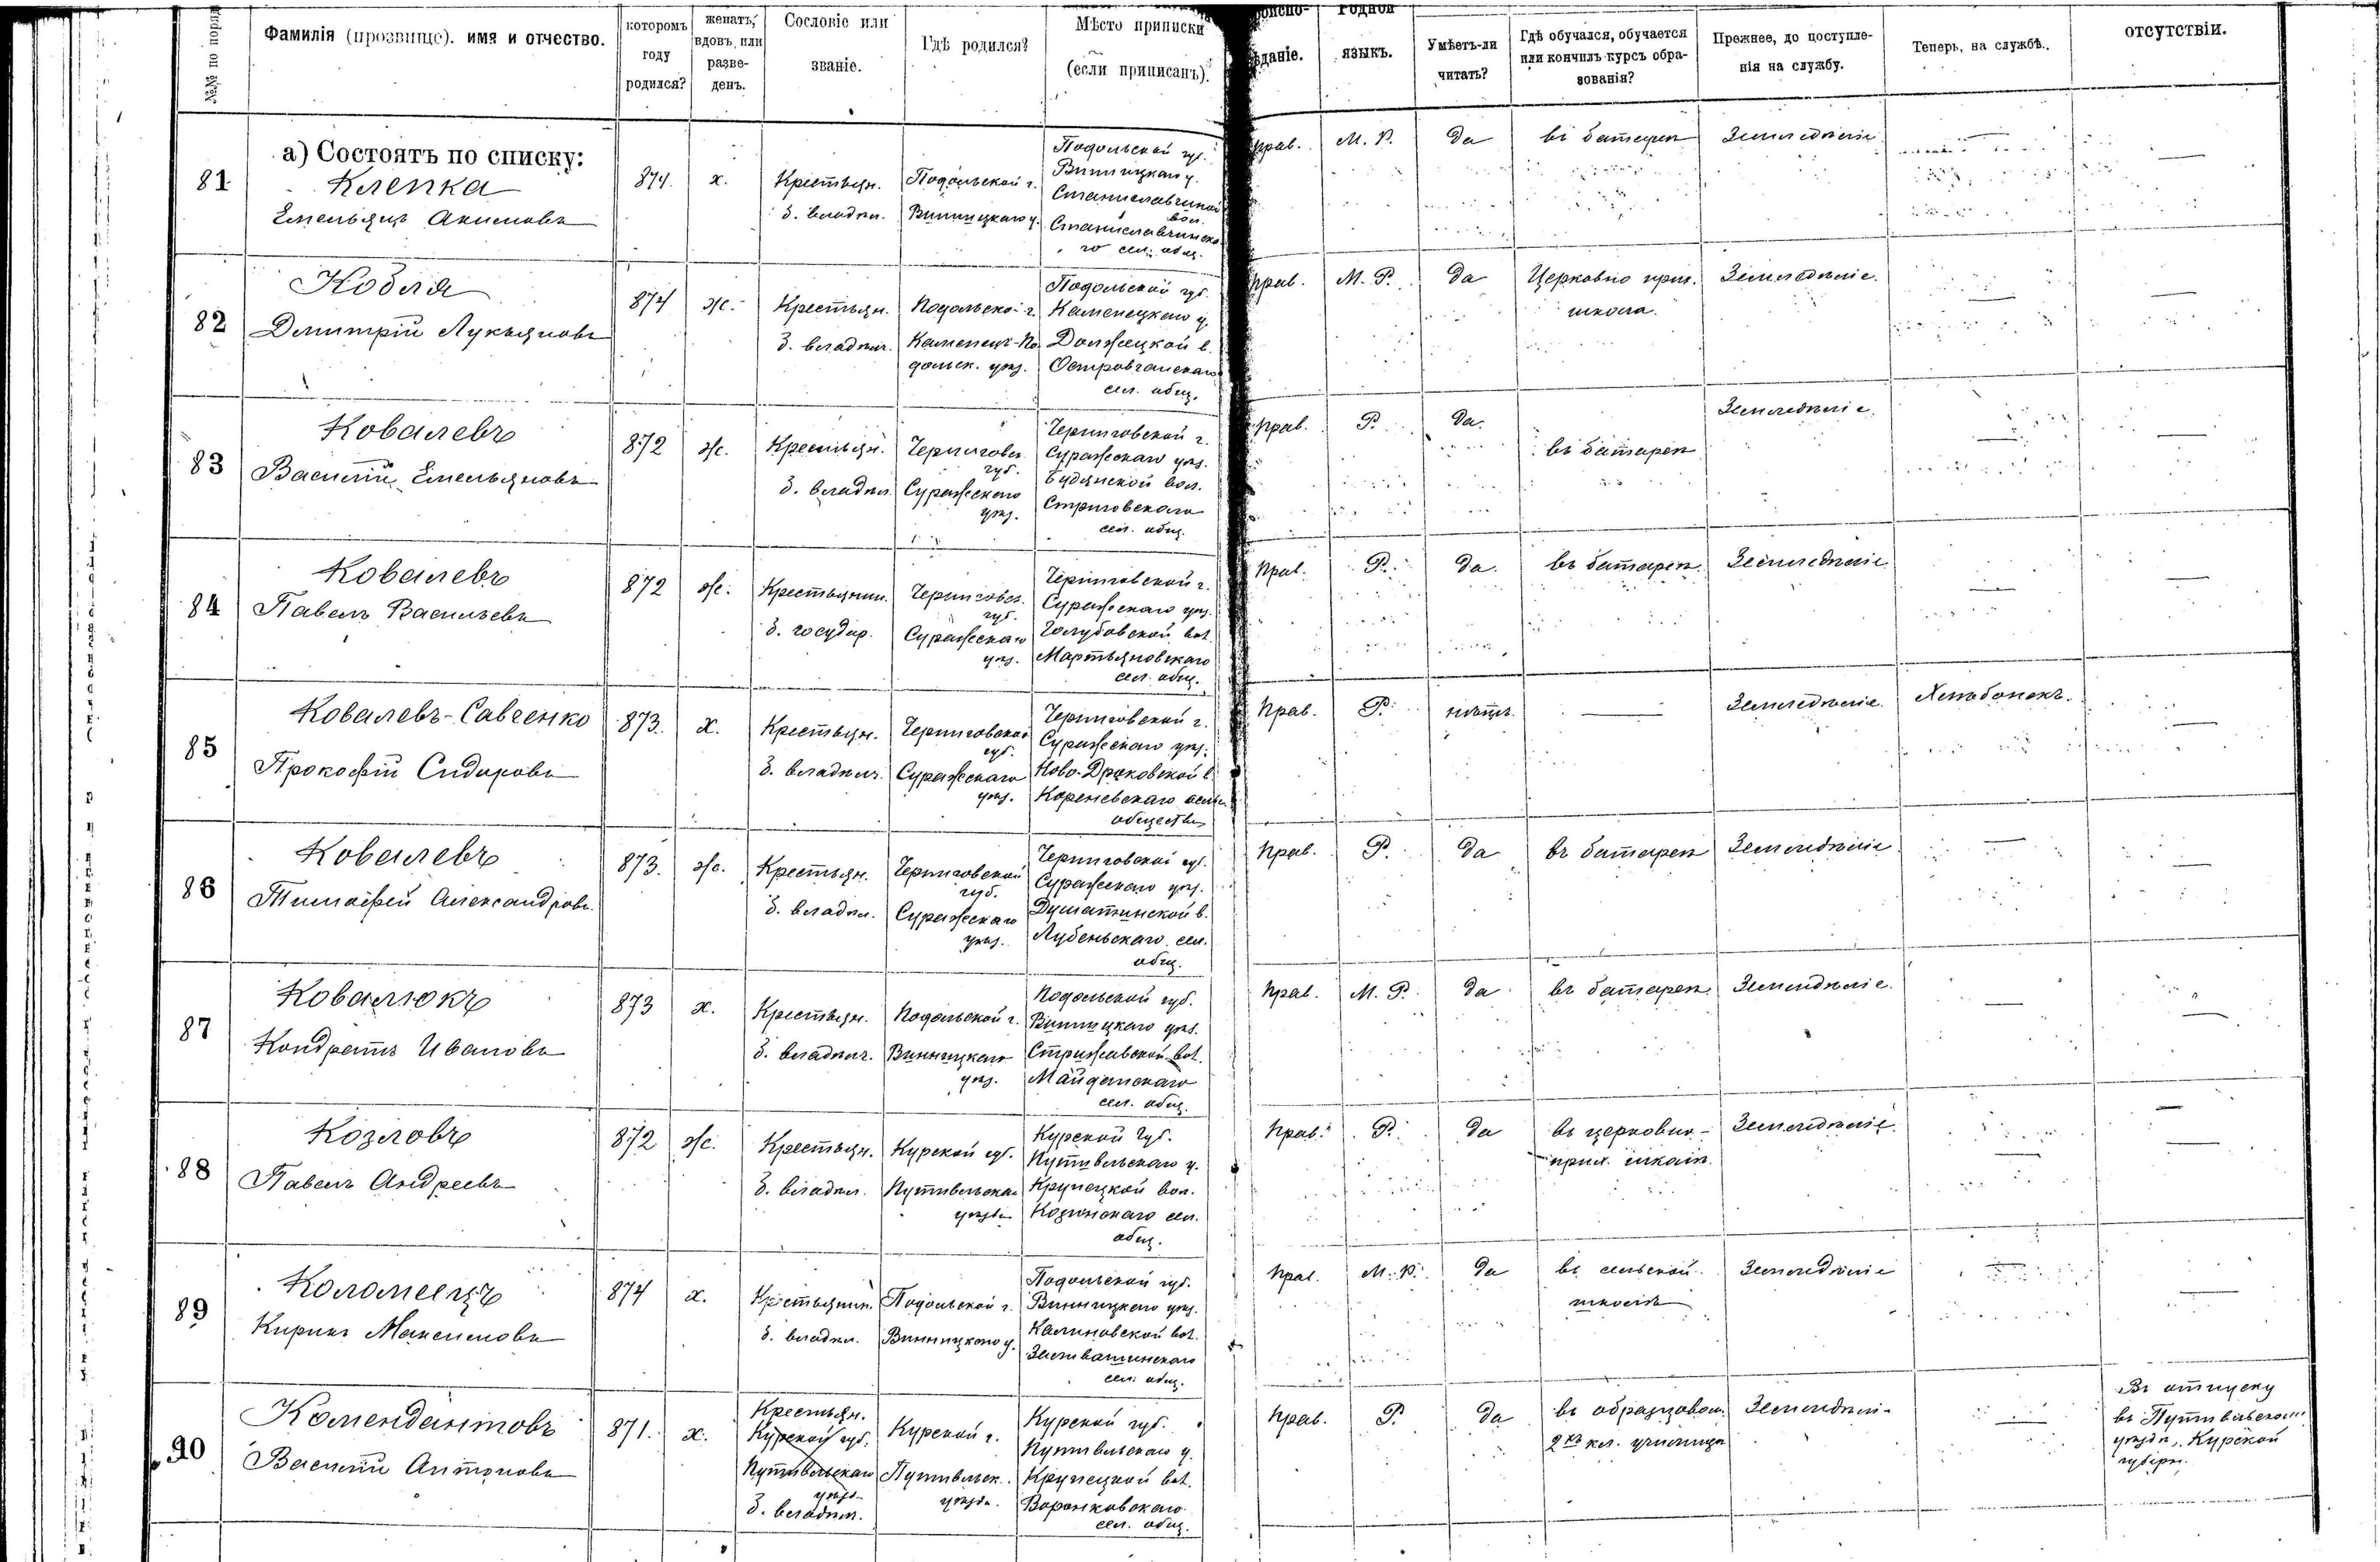 Фамилія (прозвище). имя и отчество.
которомъ году родился?
женатъ, вдовъ, или разве-денъ.
Сословіе или званіе.
Гдѣ родился?
Мѣсто приписки (если приписанъ).
Родной языкъ.
Умѣетъ-ли читать?
Гдѣ обучался, обучается или кончилъ курсъ обра-зованія?
Прежнее, до поступле-нія на службу.
Теперь, на службѣ.
отсутствіи.
а) Состоятъ по списку:
81
Клепка
Емельянъ Акимовъ
874.
х.
Крестьян.
з. владѣл.
Подольской г.
Винницкаго у.
Подольской губ.
Винницкаго у.
Станиславчикой
вол.
Станиславчинска-
го сел. общ.
прав.
М. Р.
да
въ батареи
Земледѣліе
82
Кобля
Дмитрій Лукьяновъ
874
ж.
Крестьян.
з. владѣл.
Подольской г.
Каменецъ-По
дольск. уѣз.
Подольской губ.
Каменецкаго у.
Должецкой в.
Островчанскаго
сел. общ.
прав.
М. Р.
да
Церковно прих.
школа.
Земледѣліе.
83
Ковалевъ
Василій Емельяновъ
872
ж.
Крестьян.
з. владѣл.
Черниговск.
губ.
Суражскаго
уѣз.
Черниговской г.
Суражскаго уѣз.
Будянской вол.
Стриговскаго
сел. общ.
прав.
Р.
да.
въ батареи
Земледѣліе.
84
Ковалевъ
Павелъ Васильевъ
872
ж.
Крестьянин.
з. государ.
Черниговск.
губ.
Суражскаго
уѣз.
Черниговской г.
Суражскаго уѣз.
Голубовской вол.
Мартьяновскаго
сел. общ.
прав.
Р.
да.
въ батареи.
Земледѣліе
85
Ковалевъ-Савченко
Прокофій Сидоровъ
873.
х.
Крестьян.
з. владѣл.
Черниговской
губ.
Суражскаго
уѣз.
Черниговской г.
Суражскаго уѣз.
Ново-Дроковской в.
Кореневскаго сельск.
общества
Прав.
Р.
нѣтъ.
Земледѣліе.
Хлѣбопекъ.
86
Ковалевъ
Тимофей Александровъ.
873.
ж.
Крестьян.
з. владѣл.
Черниговской
губ.
Суражскаго
уѣз.
Черниговской губ.
Суражскаго уѣз.
Душатинской в.
Лубеньскаго сел.
общ.
прав.
Р.
да
въ батареи
Земледѣліе
87
Ковалюкъ
Кондратъ Ивановъ
873
х.
Крестьян.
з. владѣл.
Подольской г.
Винницкаго
уѣз.
Подольской губ.
Винницкаго уѣз.
Стрижавской вол.
Майданскаго
сел. общ.
прав.
М. Р.
да
въ батареи.
Земледѣліе.
88
Козловъ
Павелъ Андреевъ
872
ж.
Крестьян.
з. владѣл.
Курской губ.
Путивльска
уѣзда
Курской губ.
Путивльскаго у.
Крупецкой вол.
Козинскаго сел.
общ.
прав.
Р.
да
въ церковно-
прих. школѣ.
Земледѣліе.
89
Коломеецъ
Кирикъ Максимовъ
874
х.
Крестьянин.
з. владѣл.
Подольской г.
Винницкаго у.
Подольской губ.
Винницкаго уѣз.
Калиновской вол.
сел. общ.
прав.
М. Р.
да
въ сельской
школѣ
Земледѣліе
90
Комендантовъ
Василій Антоновъ
871.
х.
Крестьян.
Курской губ.
Путивльскаго
уѣзда
з. владѣл.
Курской г.
Путивльск.
уѣзда.
Курской губ.
Путивльскаго у.
Крупецкой вол.
Воронковскаго
сел. общ.
прав.
Р.
да
въ образцовом.
2хъ кл. училищѣ
Земледѣлі-
Въ отпуску
въ Путивльском
уѣздѣ, Курской
губерн.